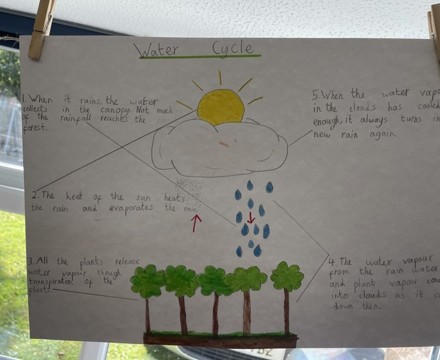 Water Cycle
1. When it rains, the water
collects in the canopy. Not much
of the rainfall reaches the
forest.
5. When the water vapo
in the clouds has
enough, it always turns in
new rain again
2. The heat of the sun heats
the rain and evaporates the rain
3. All the plants release
water vapour through
transpiration of the
plant
4. The water vapour
from the rain water
and plant vapour
into clouds as it
down then.